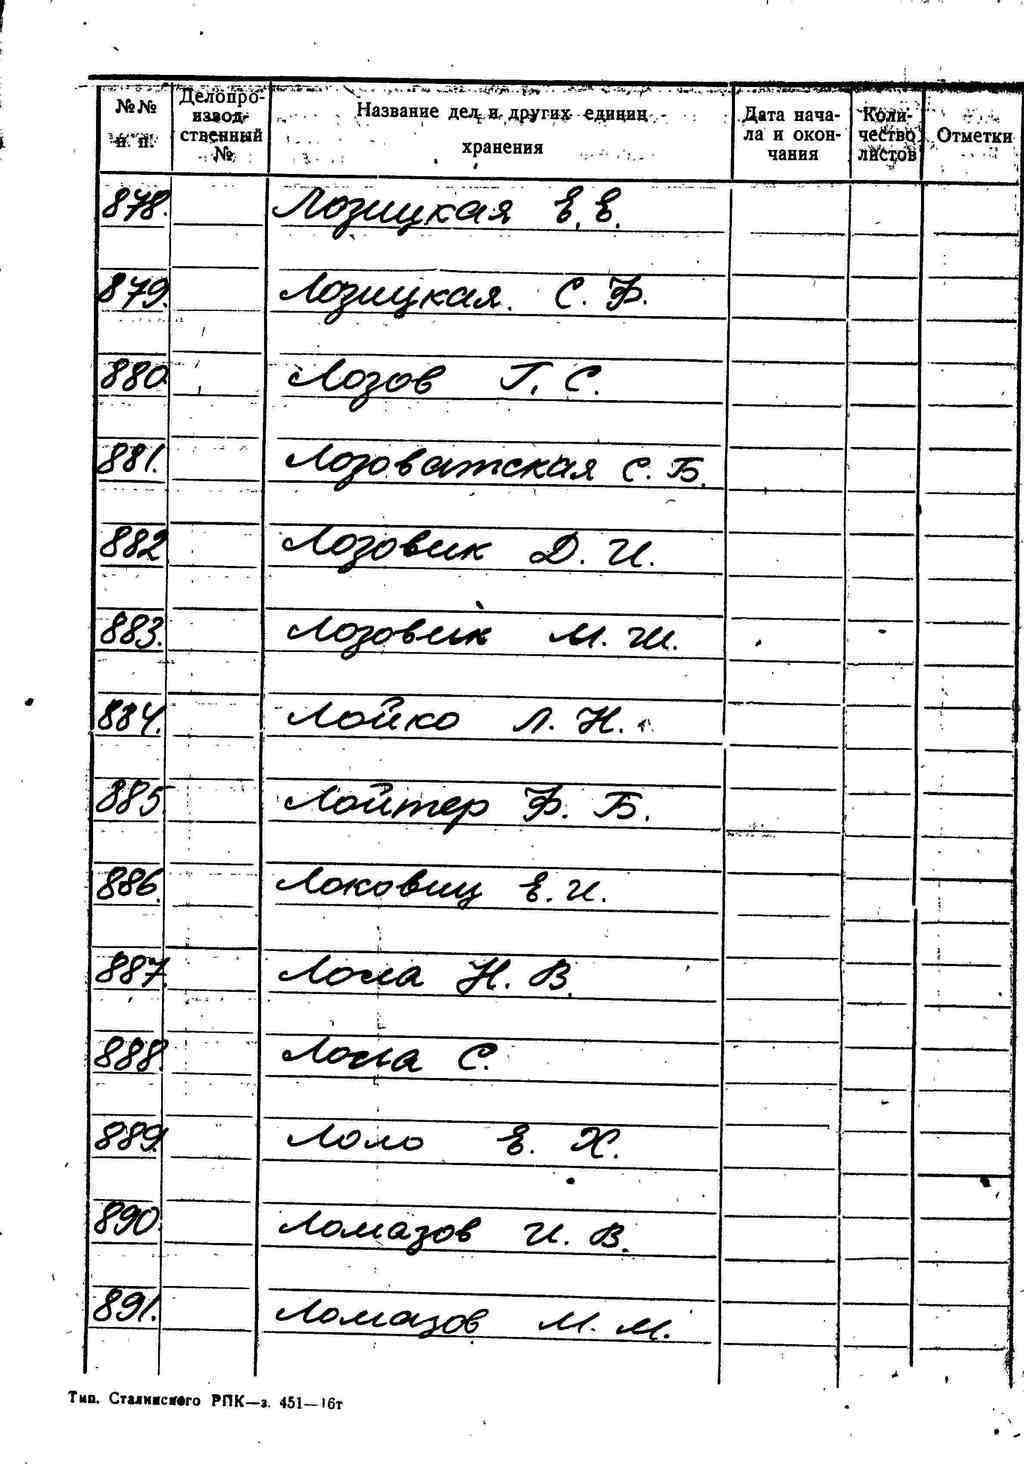 №№ п. п. Делопро-изводственный № Название дел и других единиц хранения Дата начала и окончания Количество листов Отметки
878. Лозицкая Е. Е.
879. Лозицкая С. Ф.
880. Лозов Г. С.
881. Лозоватская С. Б.
882 Лозовик Д. И.
883. Лозовик М. Ш.
884. Лойко Л. Н.
885 Лойтер Ф. Б.
886. Локовиц Е. И.
887. Лола Н. В.
888. Лола С.
889. Лоло Е. Х.
890. Ломазов И. В.
891. Ломазов М. М.
Тип. Сталинского РПК—з. 451—16т